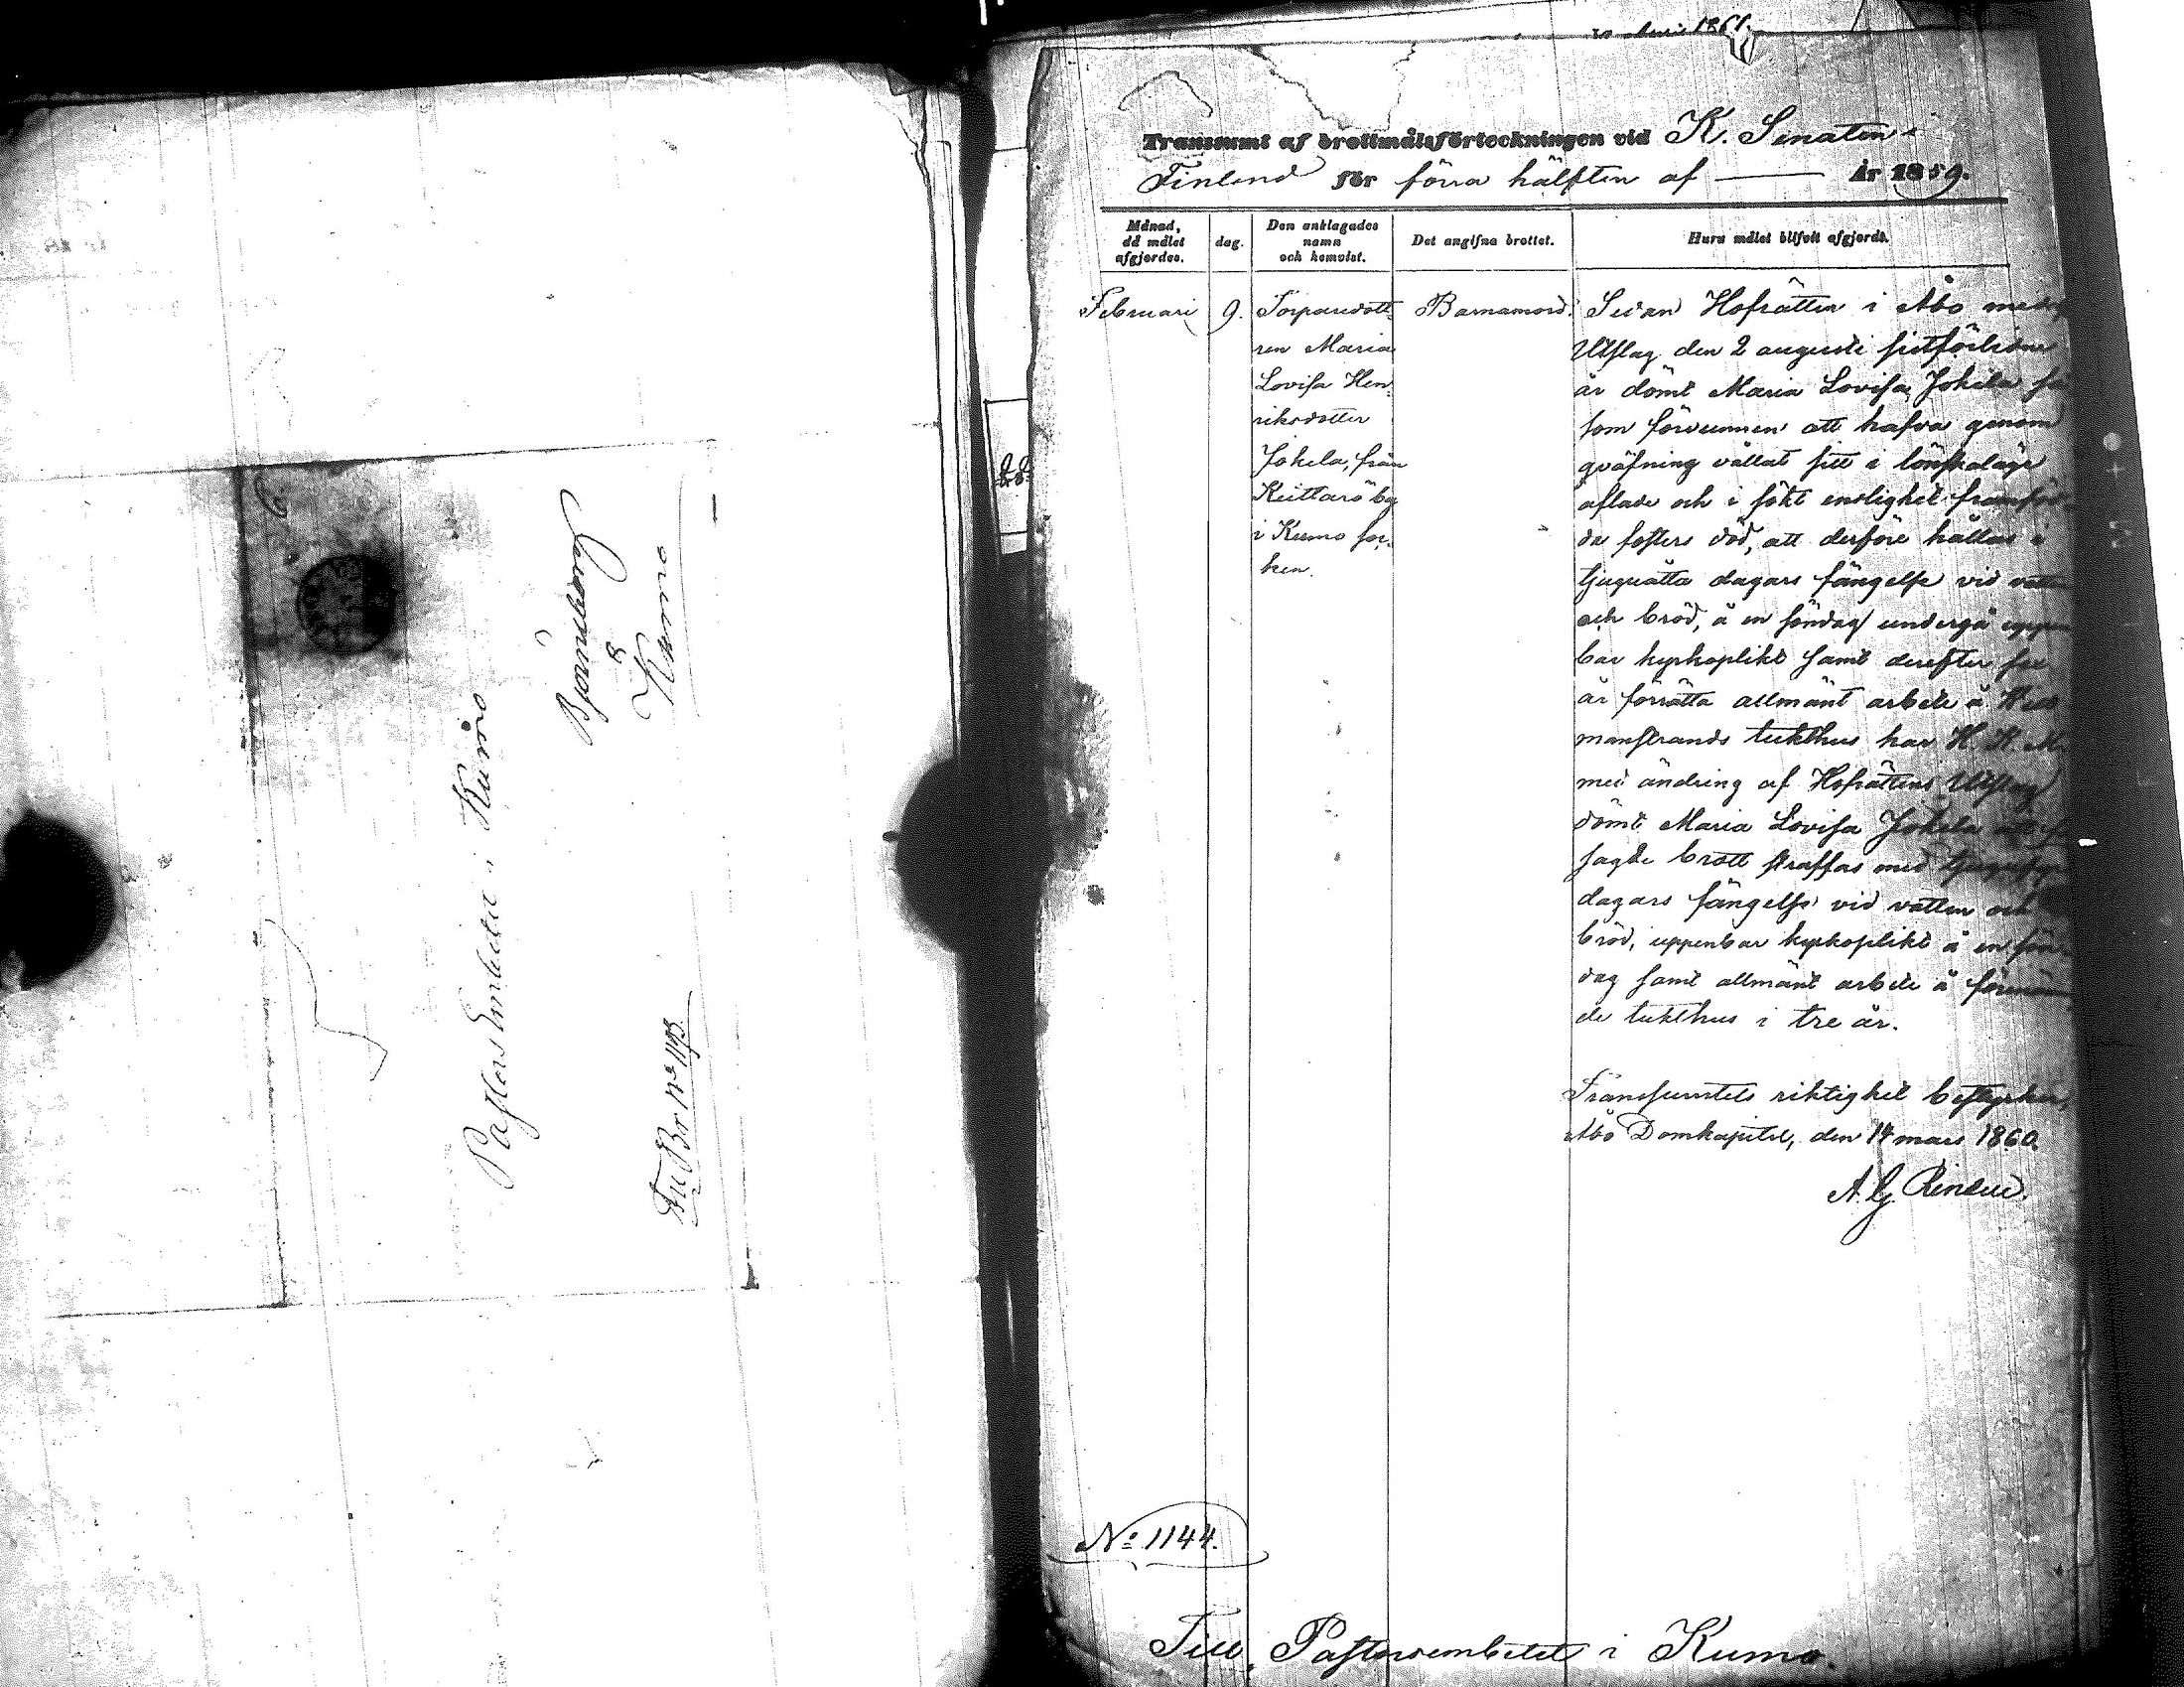 Pastors Embetet i Kumo
Björneborg
&
Kumo
Fri Br Nº 1193.
1861.
Transsumt af brottmålsförteckningen vid K. Senaten i
Finland för förra hälften af År 1859.
Månad,
då målet
afgjordes.
dag.
Den anklagades
namn
och hemvist.
Det angifna brottet.
Huru målet blifvit afgjordt.
Februari
9.
Torparedott-
ren Maria
Lovisa Hen-
riksdotter
Jokela, från
Keittarö by
i Kumo soc-
ken.
Barnamord.
Sedan Hofrätten i Åbo med
Utslag den 2 augusti sistförlidne
år dömt Maria Lovisa Jokela så
som förvunnen att hafva genom
qväfning vållat sitt i lönskaläge
aflade och i sökt enslighet framföd
da fosters död, att derföre hållas i
tjuguåtta dagars fängelse vid vatten
och bröd, å en söndag undergå uppen
bar kyrkoplikt samt derefter sex
år förrätta allmänt arbete å
manstrands tukthus har H. K. M.
med ändring af Hofrättens Utslag
dömt Maria Lovisa Jokela att
sagde brott straffas med
dagars fängelse vid vatten och
bröd, uppenbar kyrkoplikt å en sön
dag samt allmänt arbete å förenäm
de tukthus i tre år.
Transsumtets riktighet bestyrker,
Åbo Domkapitel, den 14 mars 1860.
A. G.
Nº 1144.
Till Pastorsembetet i Kumo.